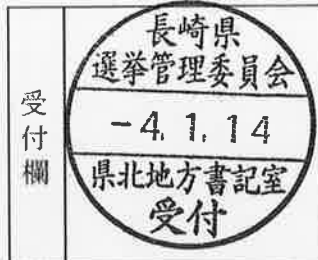 受付欄
長崎県
選挙管理委員会
-4.1.14
県北地方書記室
受付